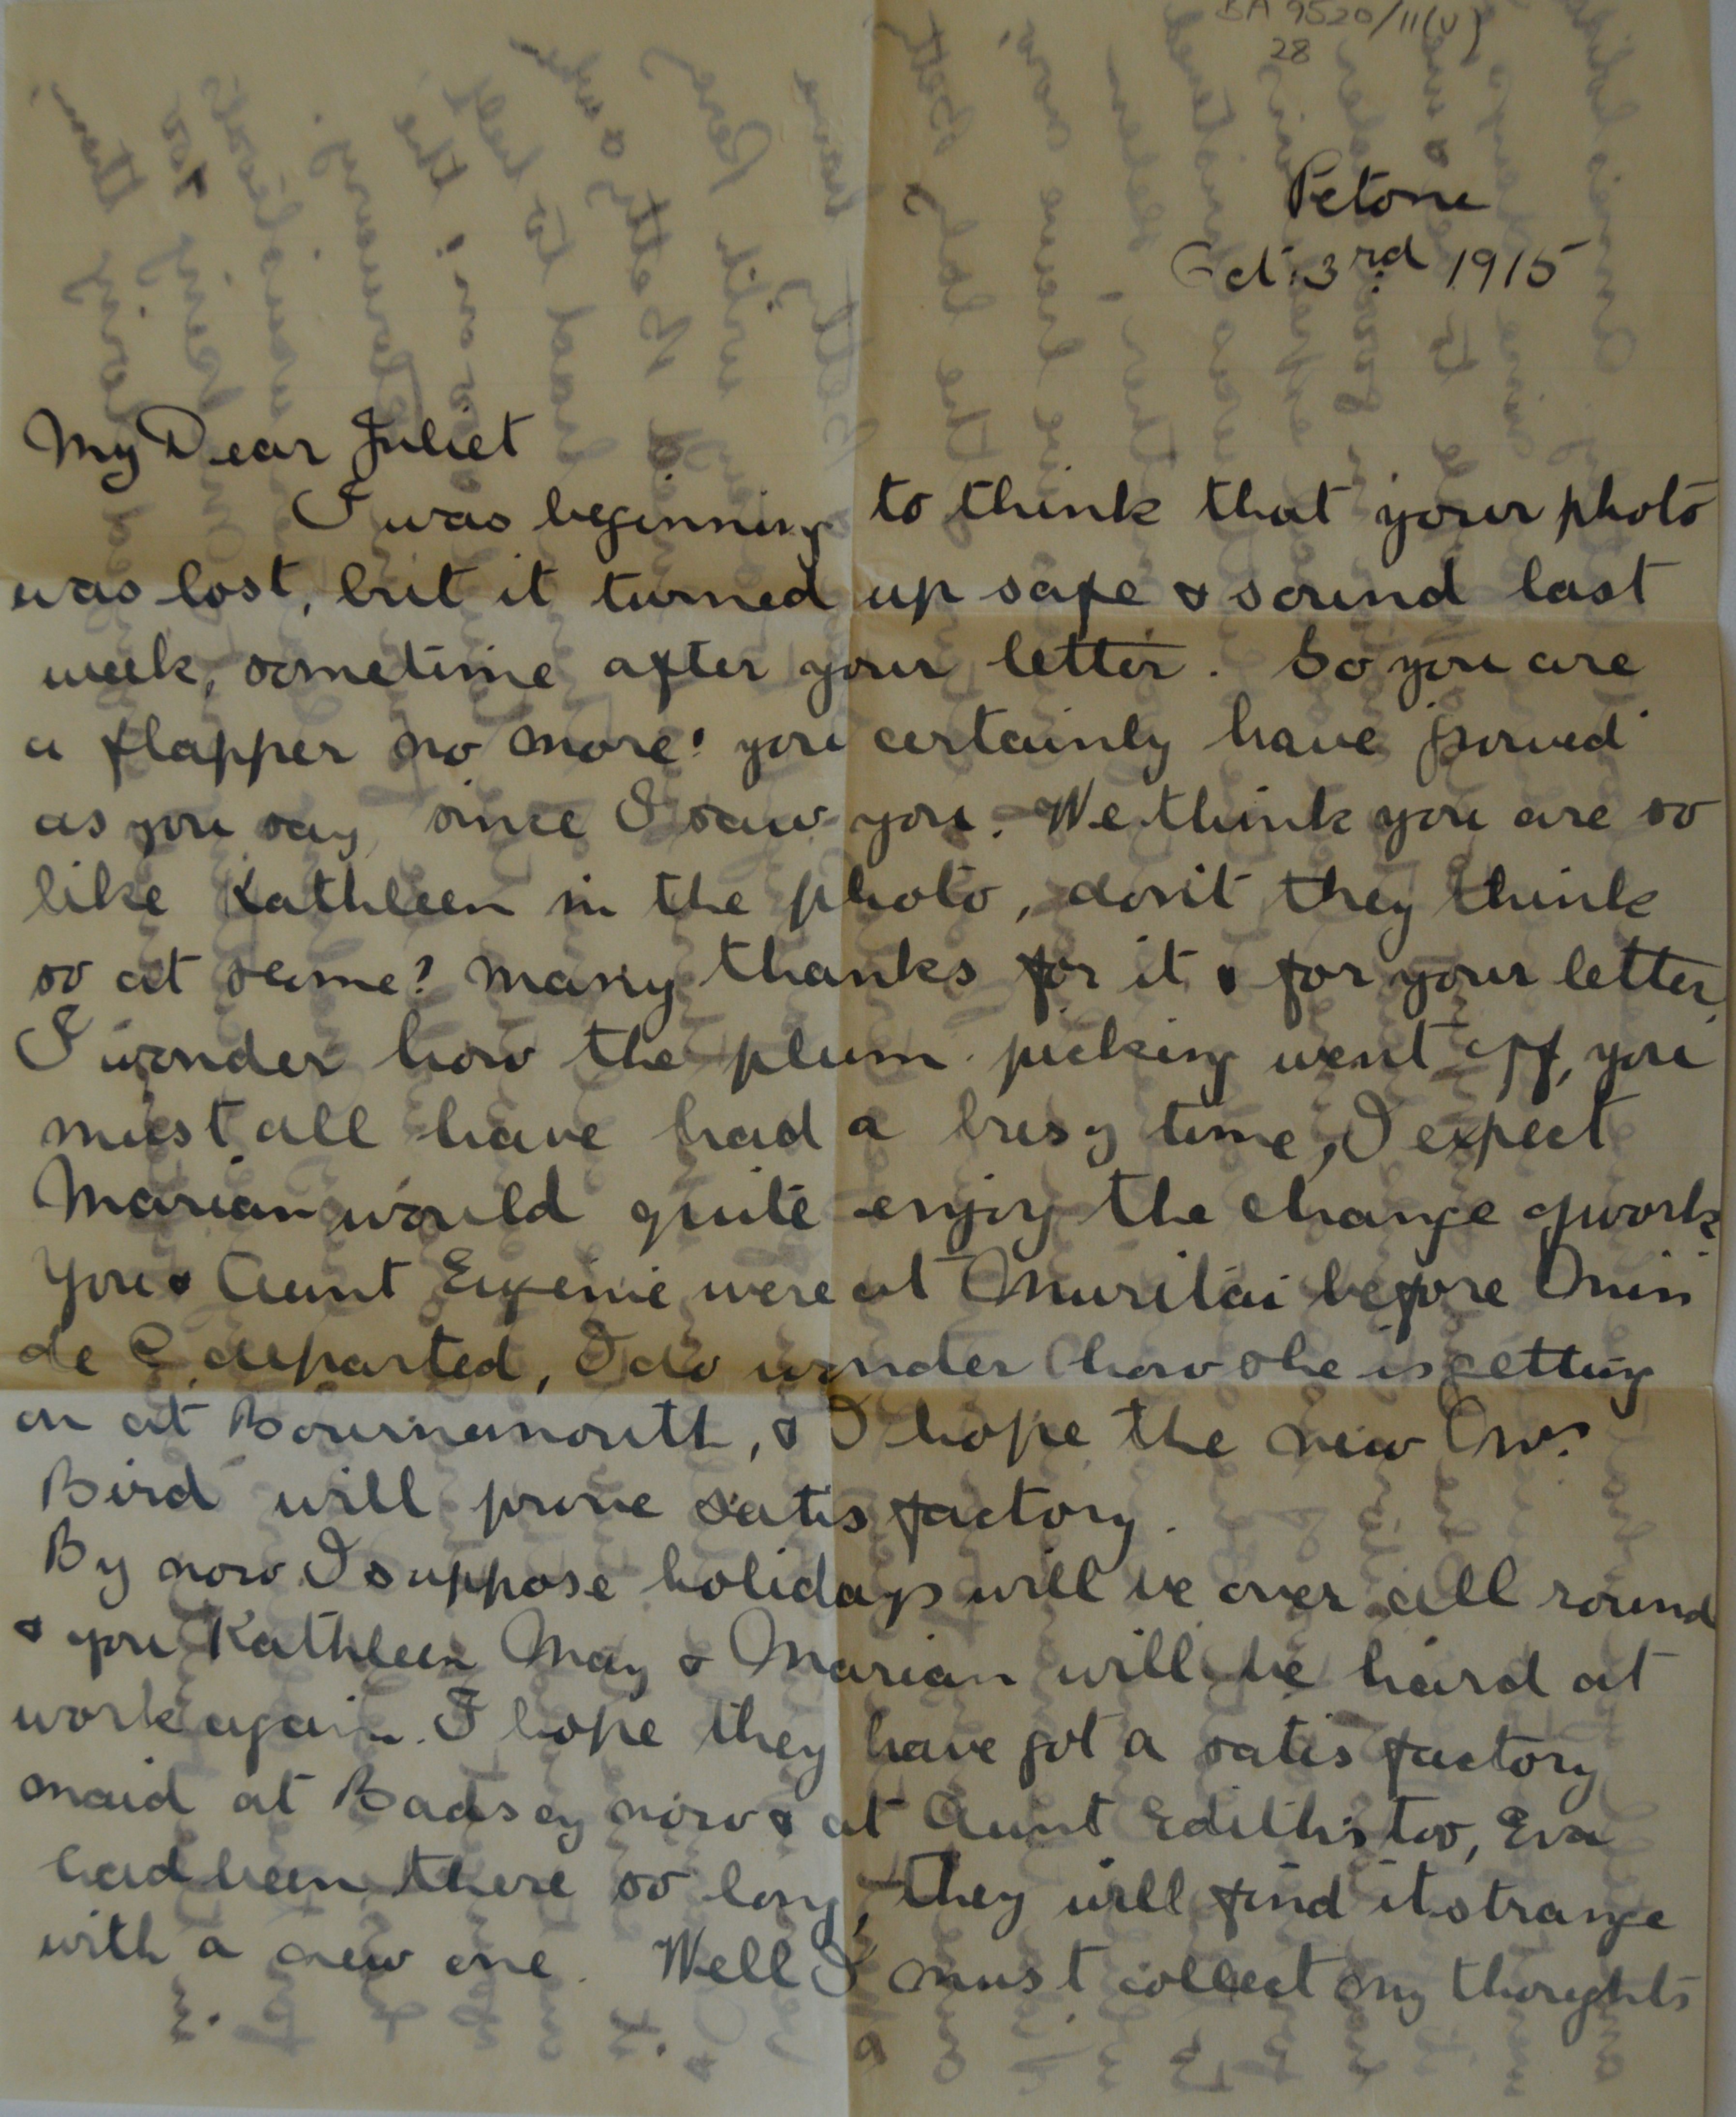 BA 9520/11(v)
28
Petone
Oct: 3rd 1915
My Dear Juliet
I was beginning to think that your photo
was lost, but it turned up safe & sound last
week, sometime after your letter. So you are
a flapper no more! you certainly have
as you say since I saw you. We think you are so
like Kathleen in the photo, don't they think
so at seame? Many thanks for it & for your letter.
I wonder how the plum picking went off, you
must all have had a busy time, I expect
Marian would quite enjoy the change of work
You & Aunt Eugenie were at Muritai before Miss
de C departed, I do wonder how she is getting
on at Bournemouth, & I hope the new Mrs
Bird will prove satisfactory.
By now I suppose holidays will be over all round
& you Kathleen May & Marian will be hard at
work again. I hope they have got a satisfactory
maid at Badsey now & at Aunt Edith's too, Eva
had been there so long, they will find it strange
with a new one. Well I must collect my thoughts